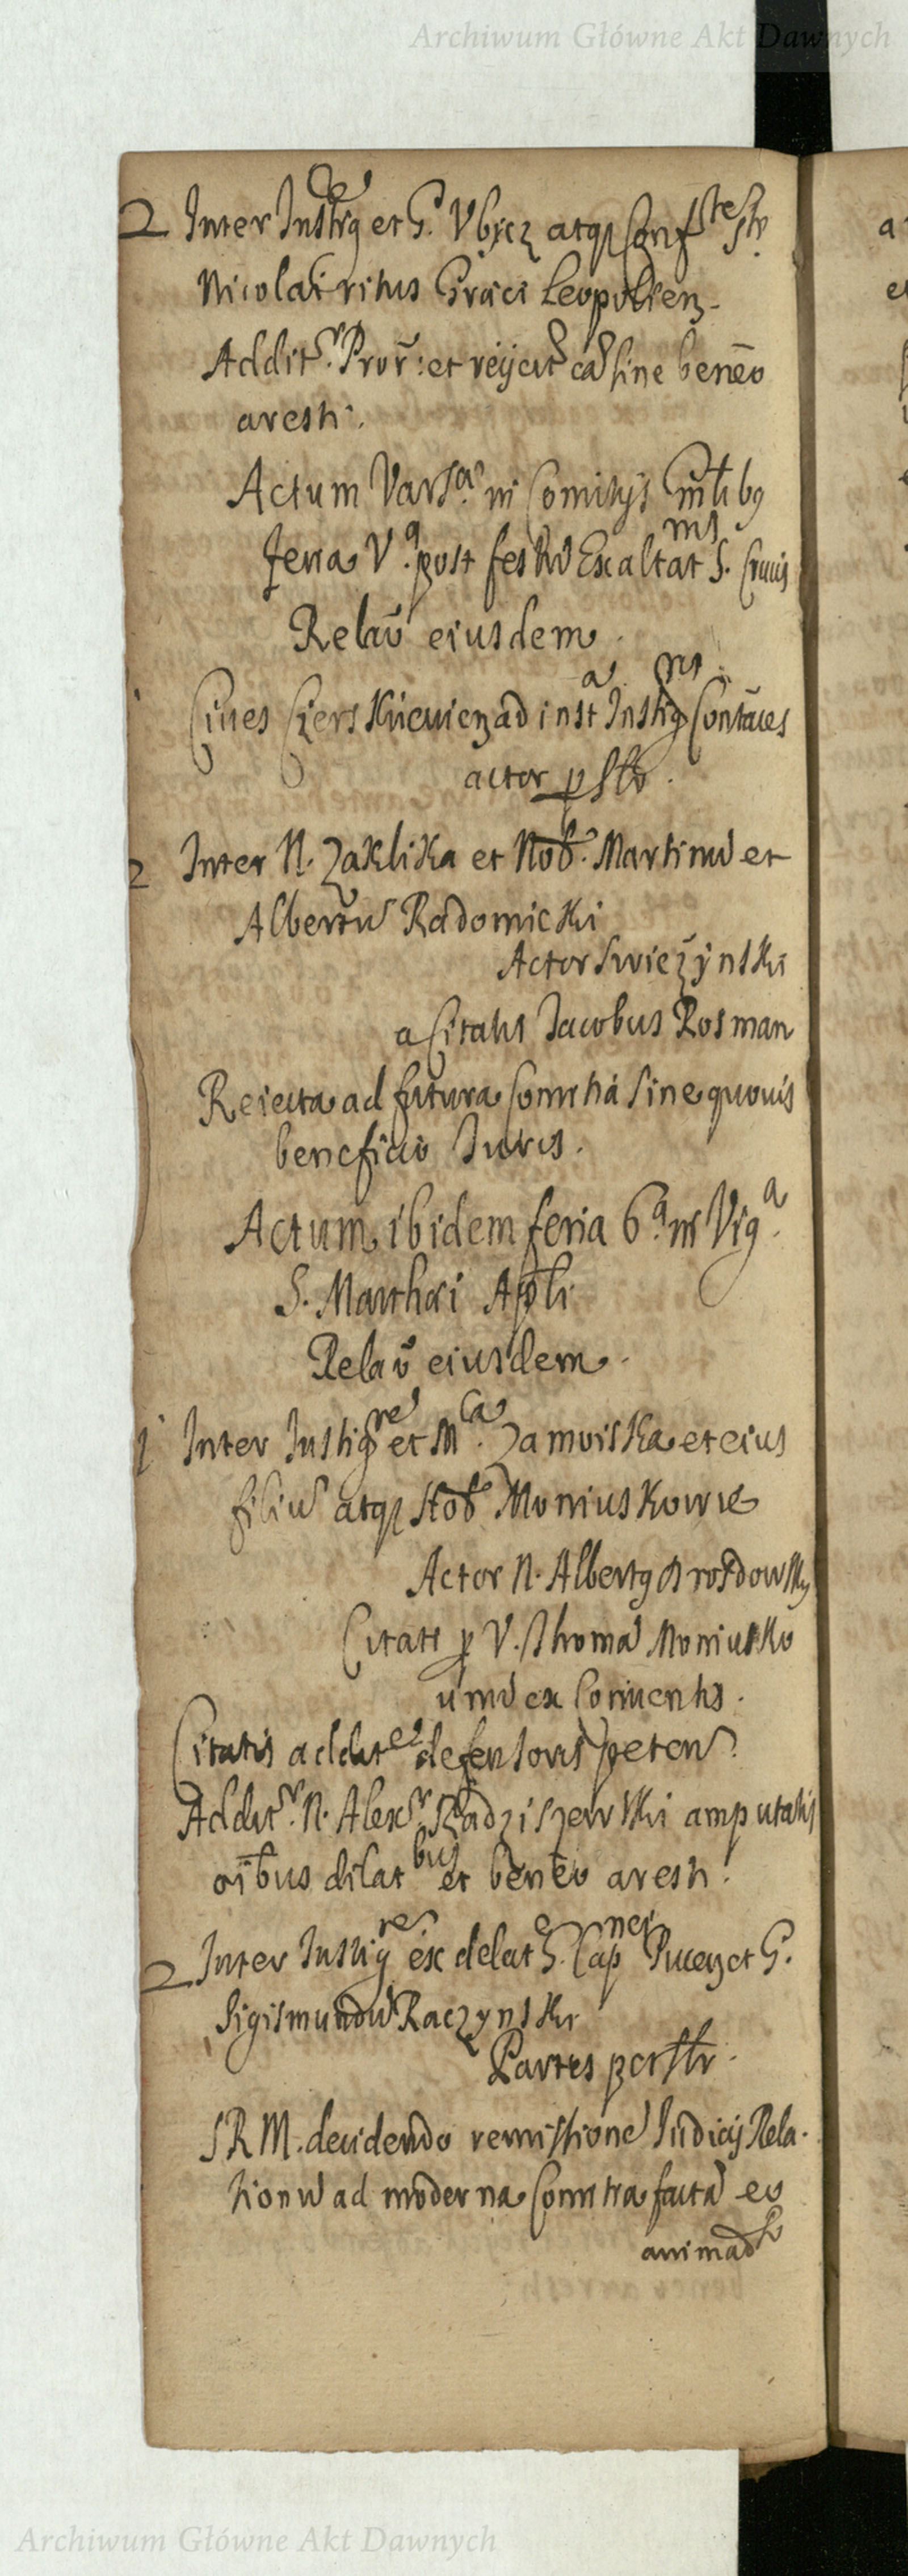 Archiwum Główne Akt Dawnych
2 Inter Instig^re et G. Vbycz atq Conf^te S^ti
Nicolai ritus Græci Leopolien.
Addit^r. Pror: et reijcit^r ca sine beneo
aresti.
Actum Vars^a. in Comitijs Gn̄libq
feria V^a. post festū Exaltat^nis S. Crucis
Relaō eiusdem.
Ciues Czerskiieuien ad inst^a Instig^ris Contāces
actor p sstr.
2 Inter N. Zaklika et Nob. Martinū et
Albertū Radomicki
Actor Swiezynski
a Citatis Jacobus Rosman
Reiecta ad futura Comitia sine quouis
beneficio Juris.
Actum ibidem feria 6^a in Vig^a.
S. Matthæi Apli
Relaō eiusdem.
1 Inter Instig^re et M^ca. Zamoiska et eius
filiū atq Nob Moniuskowie
Actor N. Albertq Drosdowsky
Citati p V. Thomā Moniusko
unū ex Conuentis.
Citatis addit^r defensoris peten.
Addit^r. N. Alex^r Radziszewski amputatis
oībus dilat^bus et beneo aresti.
2 Inter Instig^re ex delat^e G. Cap^nei Pucen et G.
Sigismundū Raczynski
Partes per sstr.
S R M. decidendo remissionē Judicij Rela-
tionū ad moderna Comitia factā eo
animad
Archiwum Główne Akt Dawnych